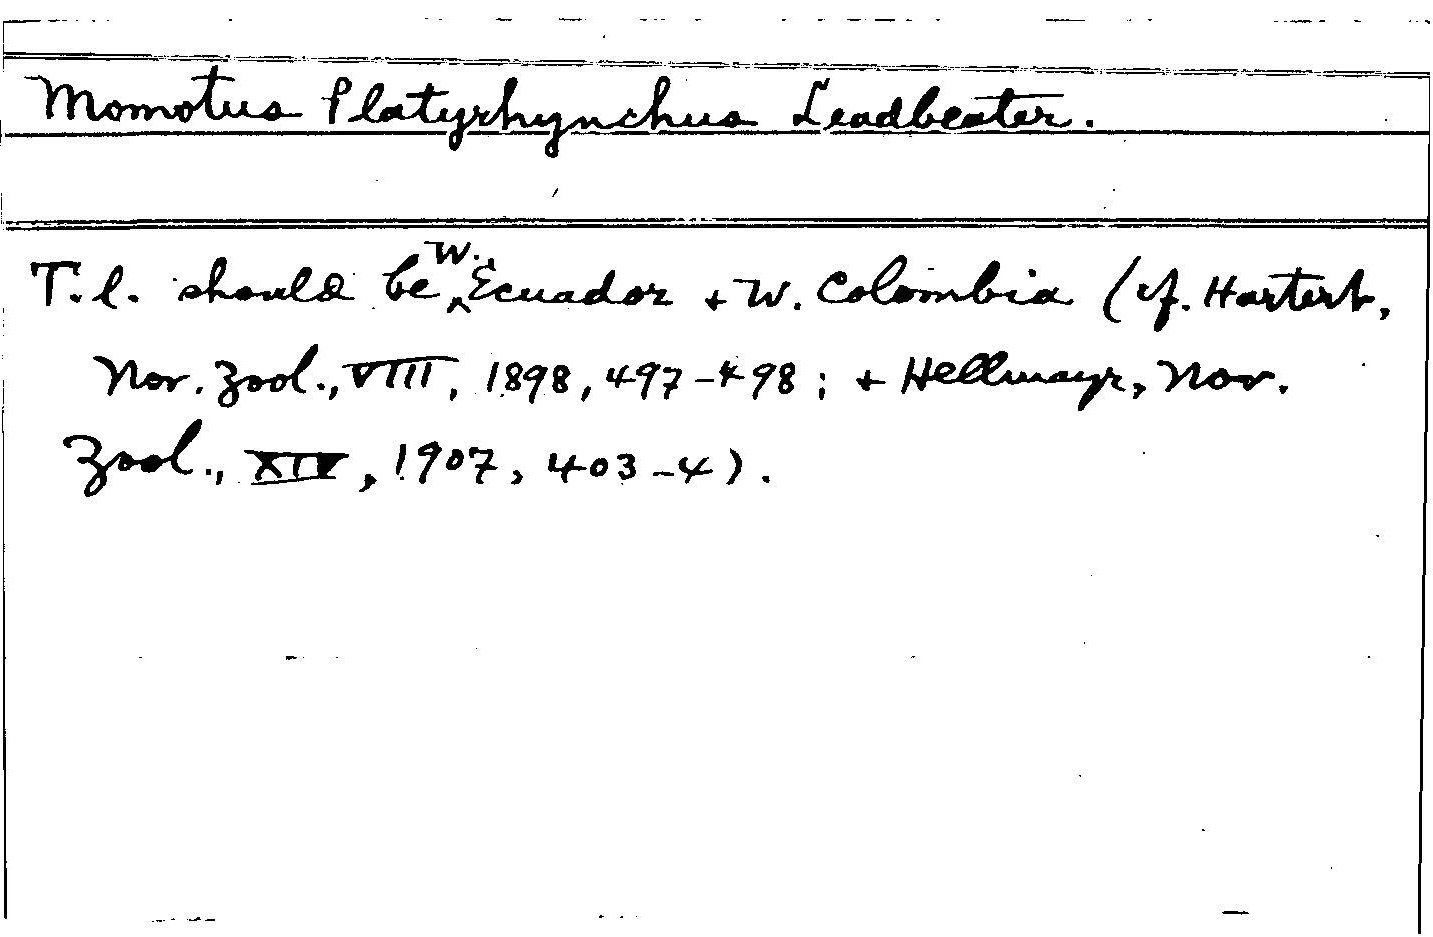 Momotus Platyrhynchus Leadbeater.
T.l. should be W. Ecuador + W. Colombia (cf. Hartert,
Nov. Zool., VIII, 1898, 497-498; + Hellmayr, Nov.
Zool., XIV, 1907, 403-4).